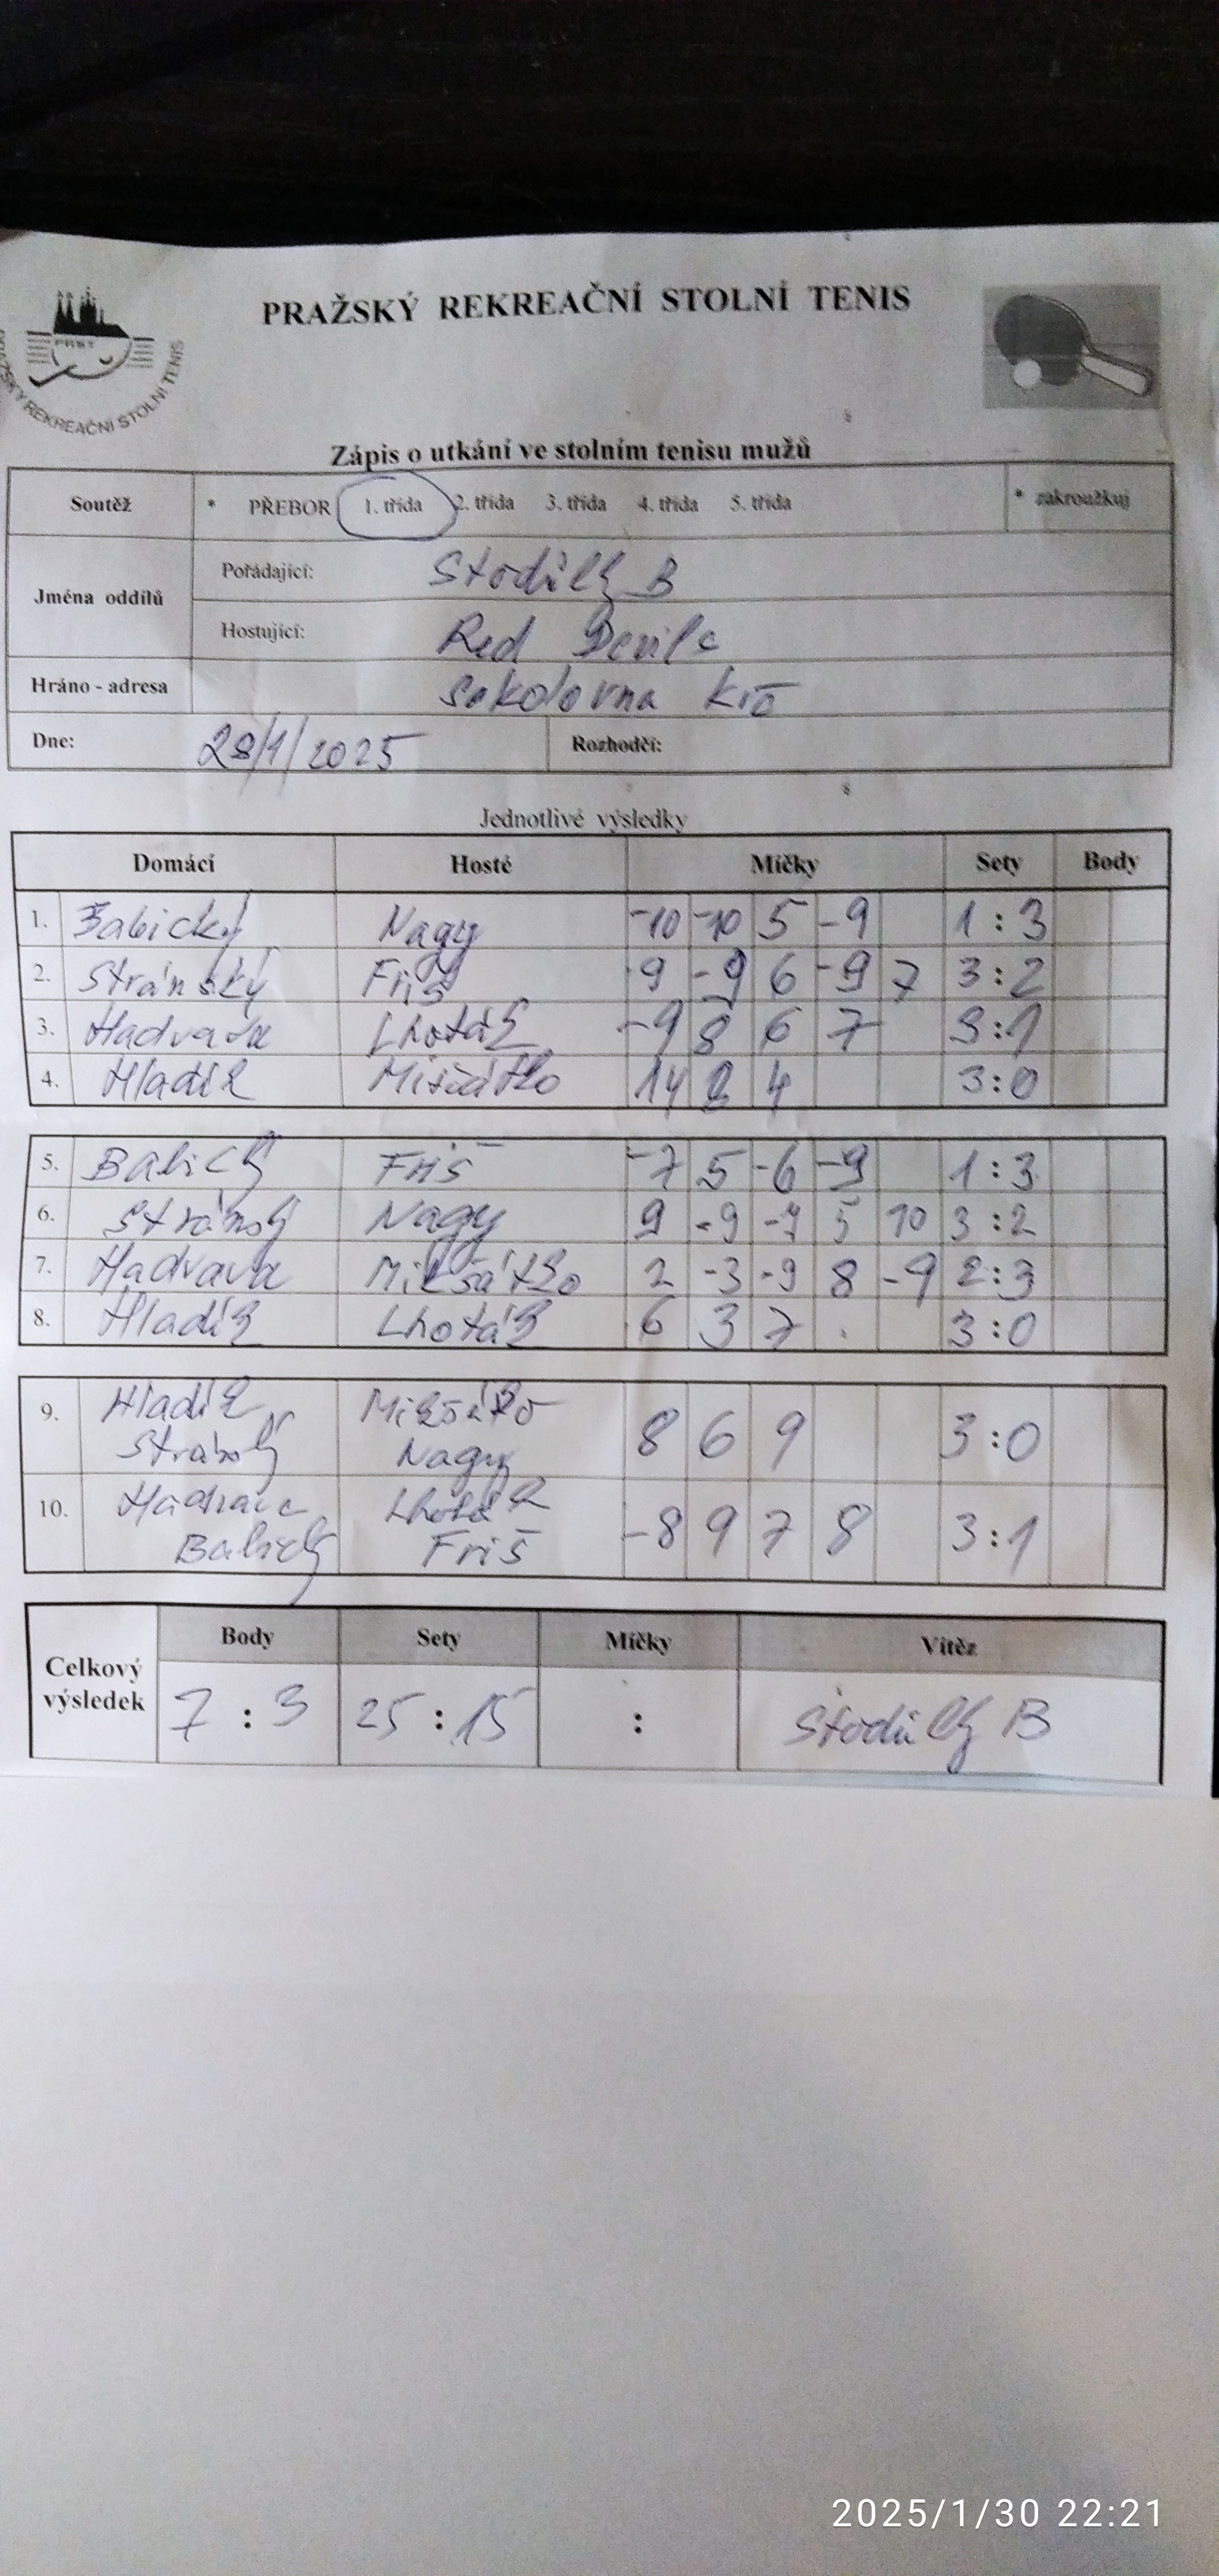 PRAŽSKÝ REKREAČNÍ STOLNÍ TENIS
PRST
PRAŽSKÝ REKREAČNÍ STOLNÍ TENIS
Zápis o utkání ve stolním tenisu mužů
Soutěž * PŘEBOR 1. třída 2. třída 3. třída 4. třída 5. třída * zakroužkuj
Jména oddílů
Pořádající: Stodůlky B
Hostující: Red Devils
Hráno - adresa Sokolovna
Dne: 28/1/2025 Rozhodčí:
Jednotlivé výsledky
Domácí Hosté Míčky Sety Body
1. Babický Nagy -10 -10 5 -9 1:3
2. Stránský Friš 9 -9 6 -9 7 3:2
3. Hadvava Lhoták -9 8 6 7 3:1
4. Hladík Mikšátko 14 8 4 3:0
5. Babický Friš -7 5 -6 -9 1:3
6. Stránský Nagy 9 -9 -7 5 10 3:2
7. Hadvava Mikšátko 2 -3 -9 8 -9 2:3
8. Hladík Lhoták 6 3 7 3:0
9. Hladík Mikšátko 8 6 9 3:0
Stránský Nagy
10. Hadvava Lhoták -8 9 7 8 3:1
Babický Friš
Celkový výsledek
Body Sety Míčky Vítěz
7 : 3 25 : 15 : Stodůlky B
2025/1/30 22:21